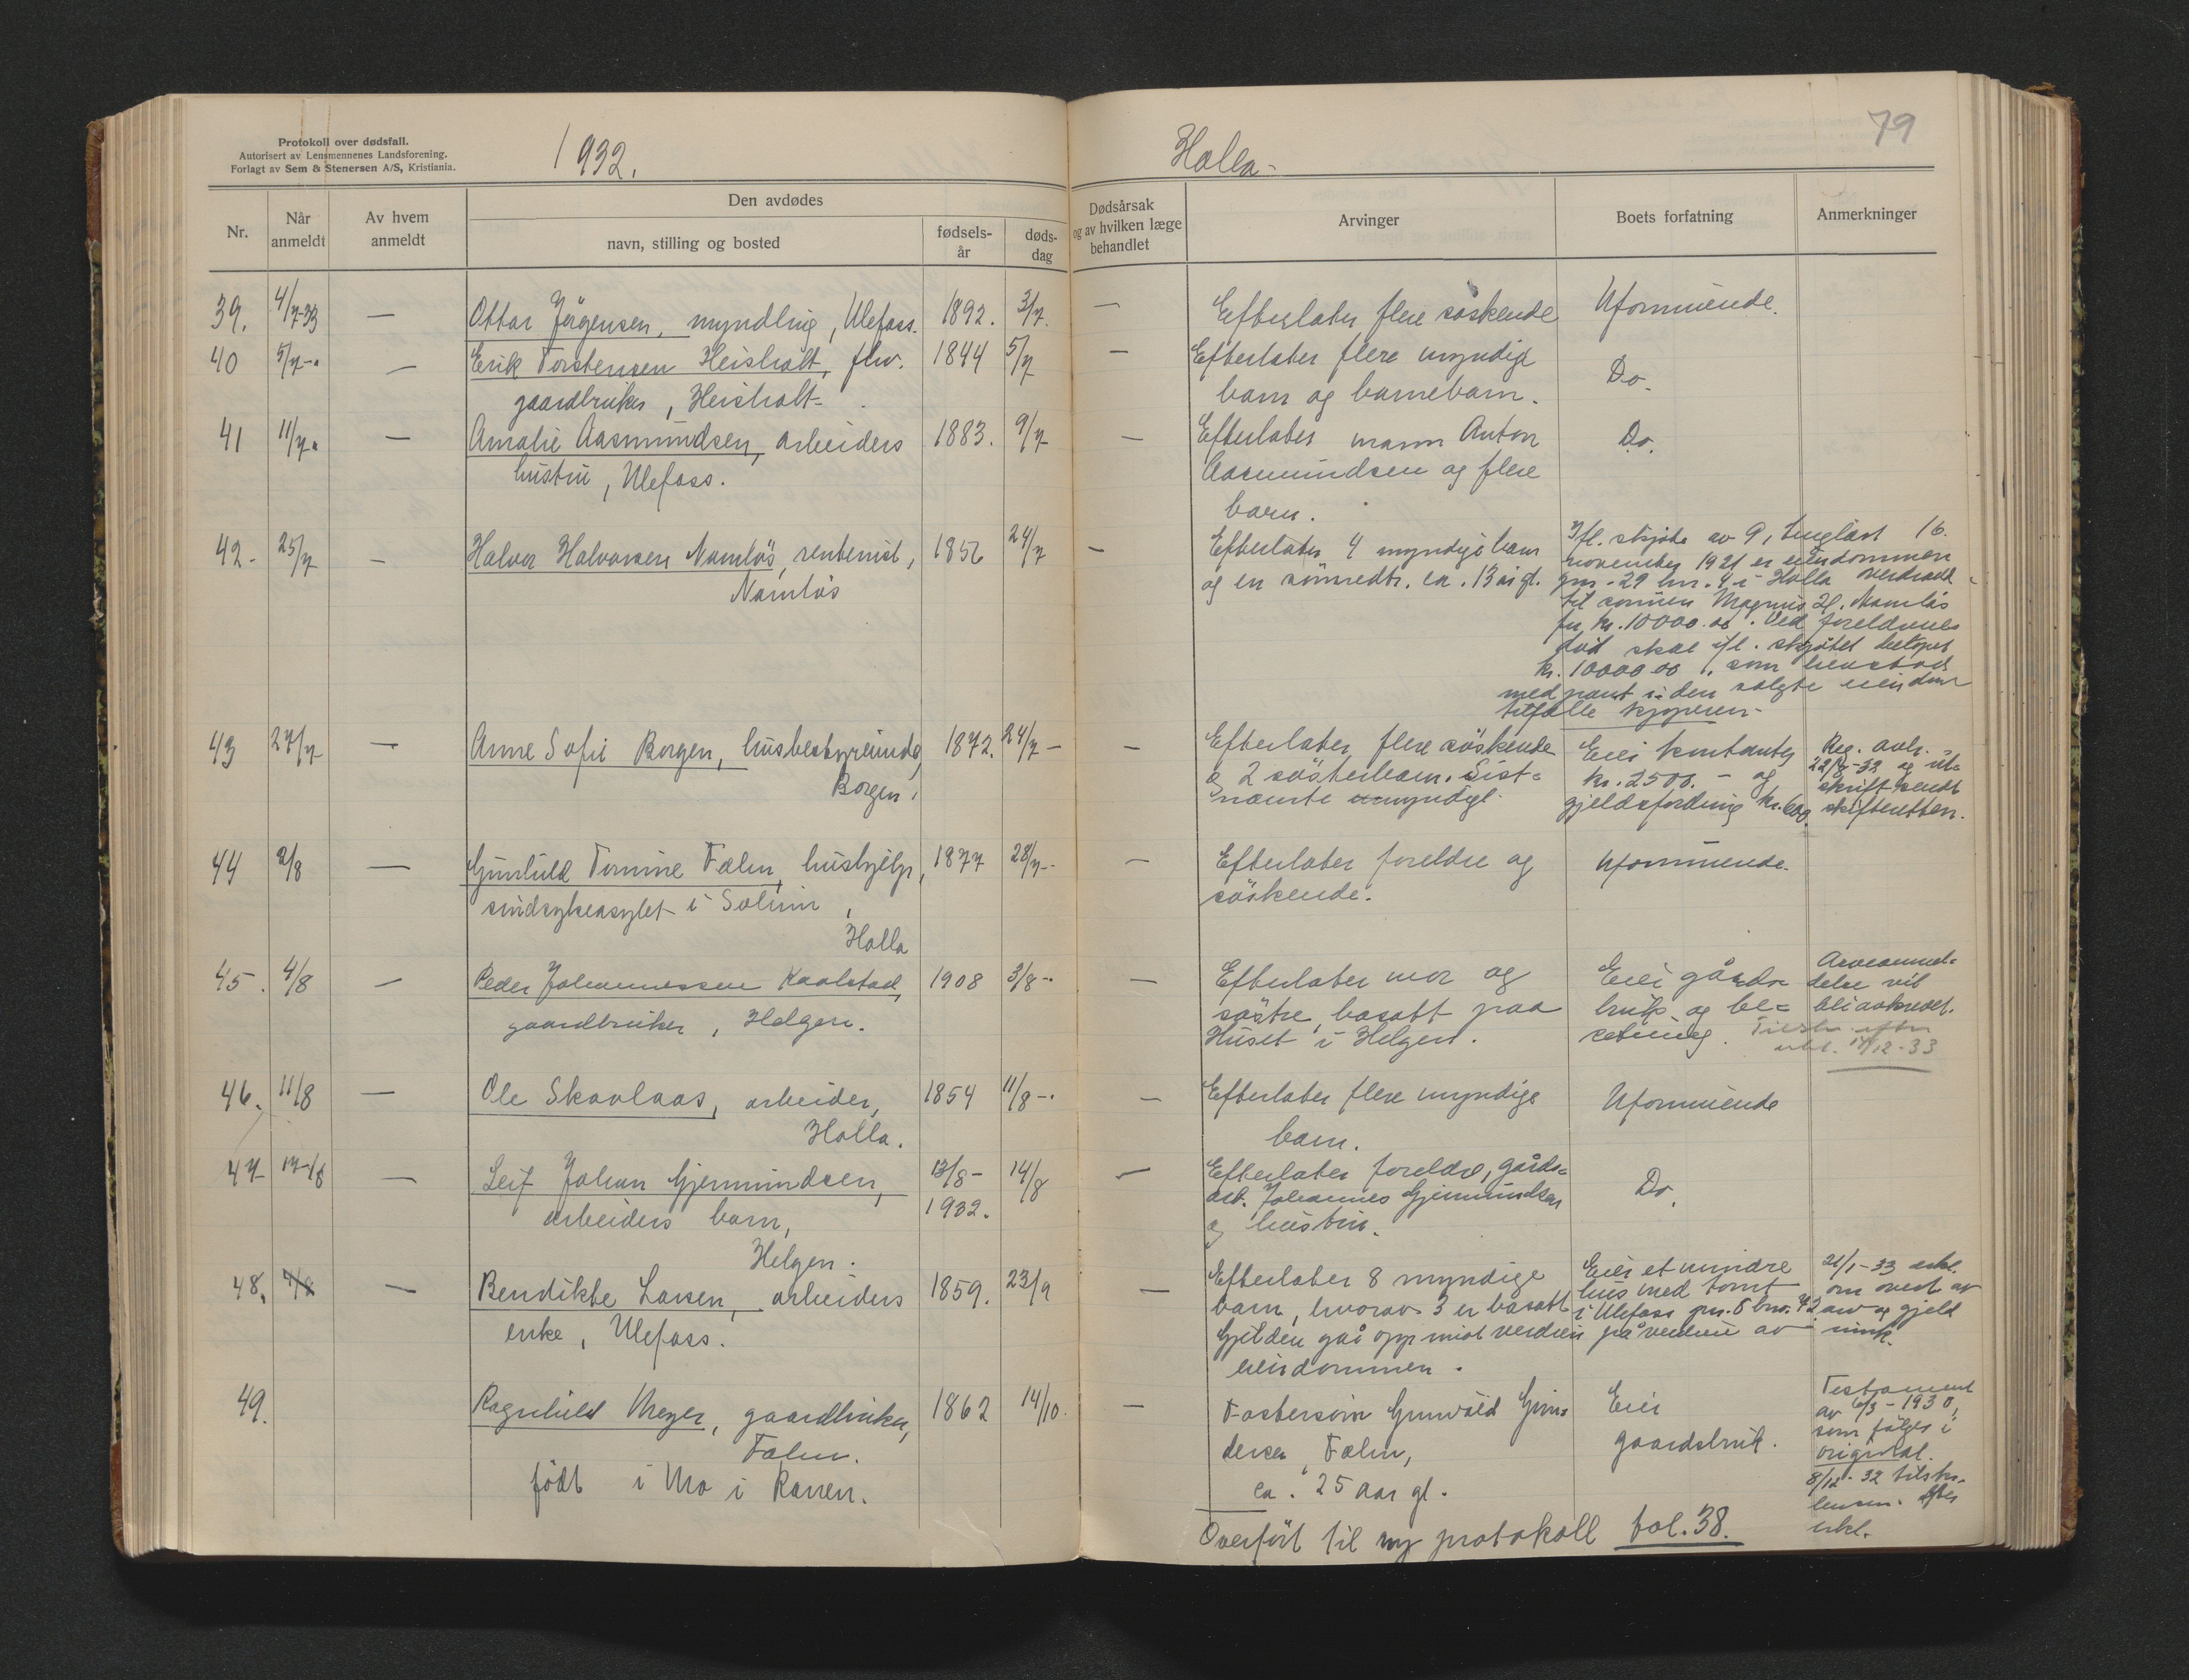 Protokoll over dødsfall.
Autorisert av Lensmennenes Landsforening.
Forlagt av Sem & Stenersen A/S, Kristiania.
1932.
Holla-
79
Nr.
Når anmeldt
Av hvem anmeldt
Den avdødes
navn, stilling og bosted
fødsels-år
døds-dag
Dødsårsak og av hvilken læge behandlet
Arvinger
Boets forfatning
Anmerkninger
39. 4/7-33 — Ottar Jörgensen, myndling, Ulefoss. 1892. 3/7. — Efterlater flere söskende Uformuende.
40 5/7-" — Erik Torstensen Heisholt, fhv. 1844 5/7 — Efterlater flere myndige
gaardbruker, Heisholt- barn og barnebarn. Do.
41 11/7" — Amalie Aasmundsen, arbeiders 1883. 9/7 — Efterlater mann Anton Do.
hustru, Ulefoss. Aasmundsen og flere
barn.
42- 25/7 — Halvor Halvorsen Namlös, rentenist, 1856 24/7 — Efterlater 4 myndige barn
Namlös og en sönnedtr. ca. 13 år gl.
Ifl. skjöte av 9, tinglest 16.
november 1921 er eiendommen
gnr. 29 bnr. 4 i Holla verdradd
til sönnen Magnus H. Namlös
for kr. 10000.00. Ved foreldrenes
död skal ifl. skjötet belöpet
kr. 10000.00, som henstod
med pant i den solgte eiendom
tilfalle kjøperen-
43 27/7 — Anne Sofie Borgen, husbestyrerinde, 1872. 24/7- — Efterlater flere söskende Eier kontanter Reg. avh.
Borgen, & 2 sösterbarn. Sist- kr. 2500.- og 22/8-32 og ut-
nevnte umyndgl. gjeldsfordring kr. 600. skrift sendt
skifteretten.
44 2/8 — Gunhild Tomine Fælen, hushjelp, 1877 28/7-. — Efterlater foreldre og Uformuende.
sindsykeasylet i Solum, söskende.
Holla
45. 4/8 — Peder Johannessen Kaalstad, 1908 3/8-. — Efterlater mor og Eier gårds- Arveanmel-
gaardbruker, Helgen. söstre, bosatt paa bruk og be- delse vil
Huset i Helgen. setning. bli avkrevet.
17/12-33
46. 11/8 — Ole Skavlaas, arbeider, 1854 11/8-. — Efterlater flere myndige Uformuende
Holla. barn.
47 17/8 — Leif Johan Gjermundsen, 13/8- 14/8 — Efterlater foreldre, gårds- Do.
arbeiders barn, 1932. arb. Johannes Gjermundsen
Helgen. og hustru.
48. 4/8 — Bendikte Larsen, arbeiders 1859. 23/9 — Efterlater 8 myndige Eier et mindre 21/1-33 erkl.
enke, Ulefoss. barn, hvorav 3 er bosatt hus med tomt om overt. av
i Ulefoss gnr. 5 bnr. 42 arv og gjeld
Gjelden går opp imot verdien på verdien av
eiendommen.
49. Ragnhild Meyer, gaardbruker, 1862 14/10. — Fostersönn Gunvald Gun- Eier Testament
Fælen. dersen, Fælen, gaardsbruk. av 6/3-1930,
födt i Mo i Ranen. ca. 25 aar gl. som fölger i
original.
8/12-32 tilskr.
lensm. efter
erkl.
Overfört til ny protokoll fol. 38.